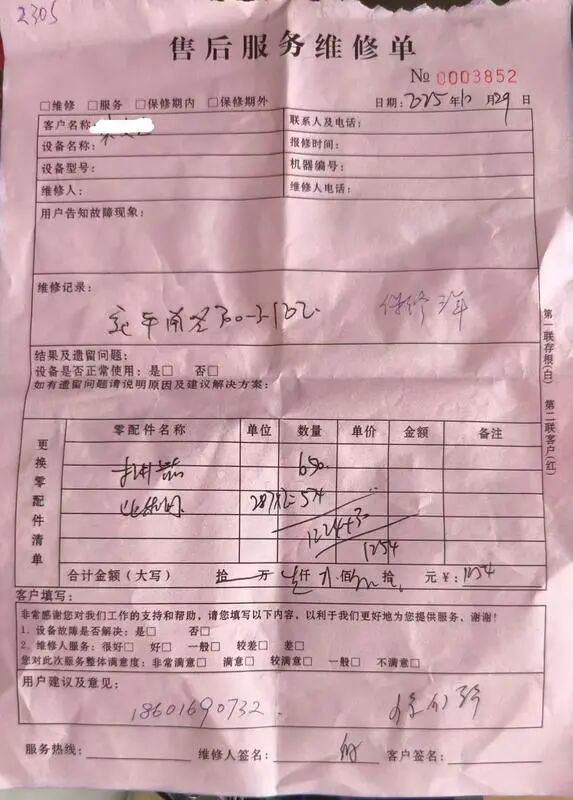 2305
售后服务维修单
№ 0003852
□维修 □服务 □保修期内 □保修期外 日期:2025年10月29日
客户名称: 联系人及电话:
设备名称: 报修时间:
设备型号: 机器编号:
维修人: 维修人电话:
用户告知故障现象:
维修记录:
保修
结果及遗留问题:
设备是否正常使用:是□ 否□
如有遗留问题请说明原因及建议解决方案:
第一联存根(白) 第二联客户(红)
更换零配件清单
零配件名称 单位 数量 单价 金额 备注
650
287X2=574
1224+30
1254
合计金额(大写) 拾 万 仟 佰 拾 元 ¥: 1254
客户填写:
非常感谢您对我们工作的支持和帮助,请您填写以下内容,以利于我们更好地为您提供服务、谢谢!
1. 设备故障是否解决:是□ 否□
2. 维修人服务:很好□ 好□ 一般□ 较差□ 差□
您对此次服务整体满意度:非常满意□ 满意□ 较满意□ 一般□ 不满意□
用户建议及意见:
18601690732
服务热线: 维修人签名: 客户签名: